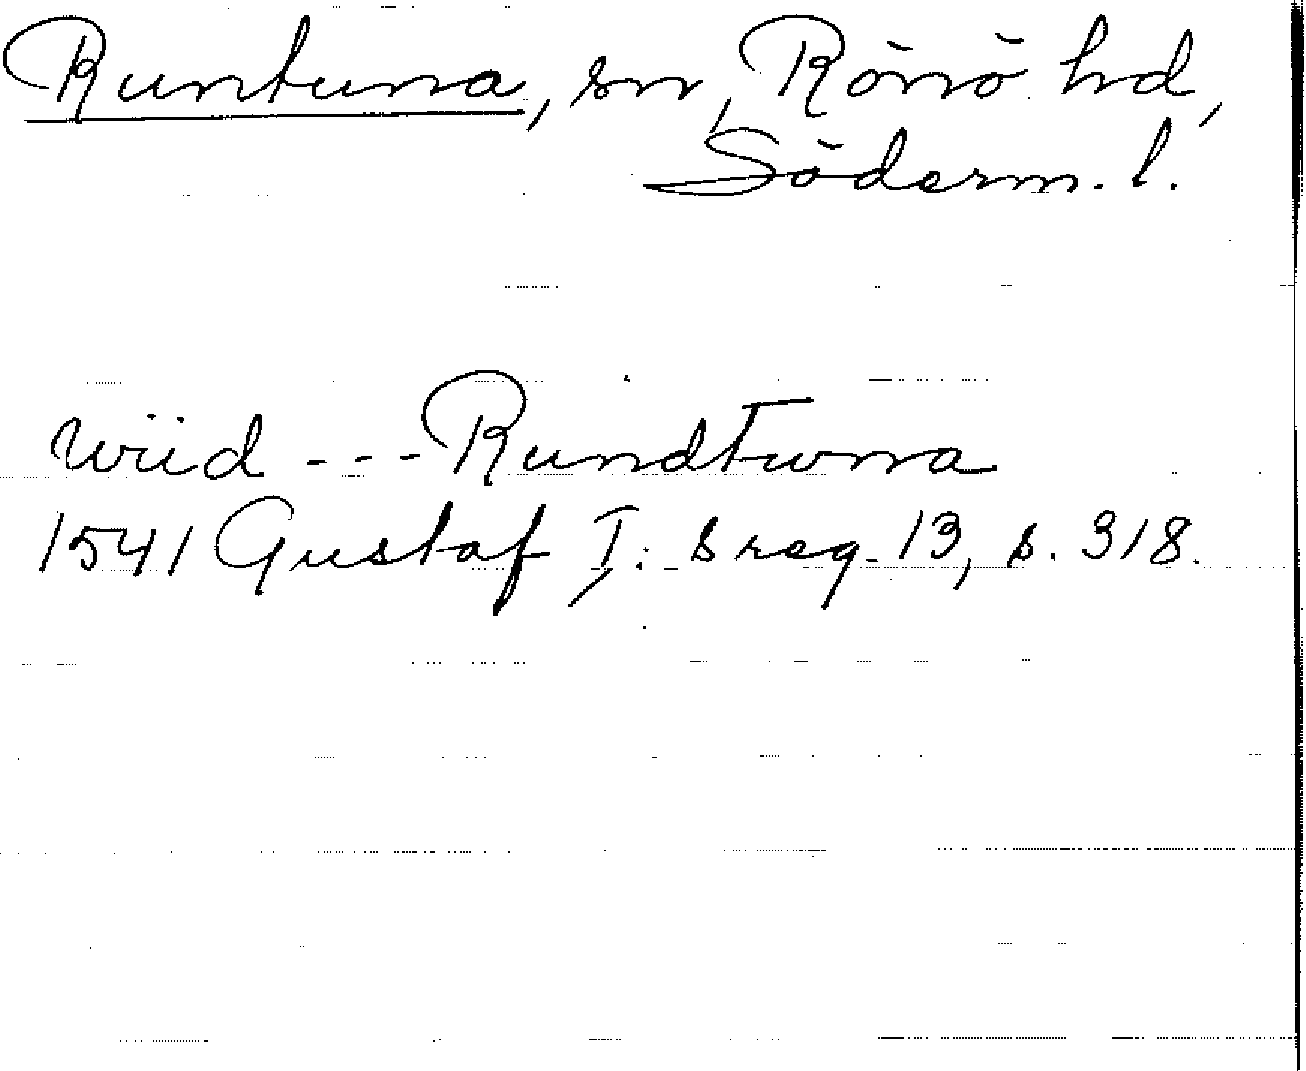 Runtuna, sn, Rönö hd,
Söderm. l.
wiid --- Rundtuna
1541 Gustaf I:s reg. 13, s. 318.